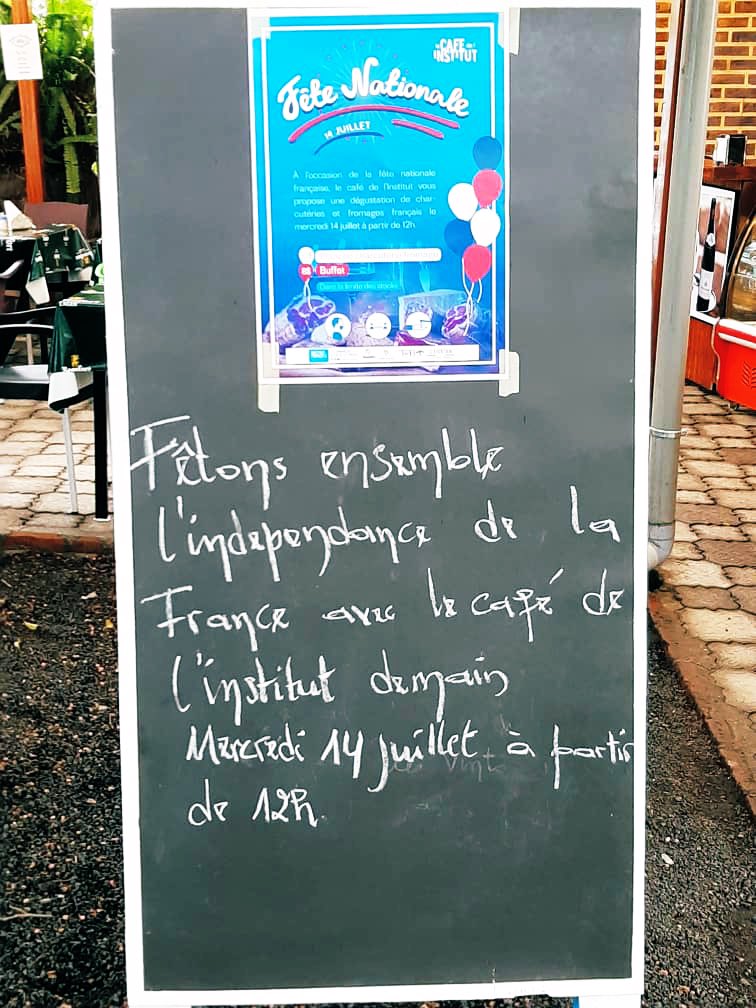 LE CAFÉ DE L'INSTITUT
Fête Nationale
14 JUILLET
À l'occasion de la fête nationale
française, le café de l'Institut vous
propose une dégustation de char-
cutéries et fromages français le
mercredi 14 juillet à partir de 12h
Buffet
Dans la limite des stocks
Fêtons ensemble
l'independance de la
France avec le café de
l'institut demain
Mercredi 14 juillet à partir
de 12h